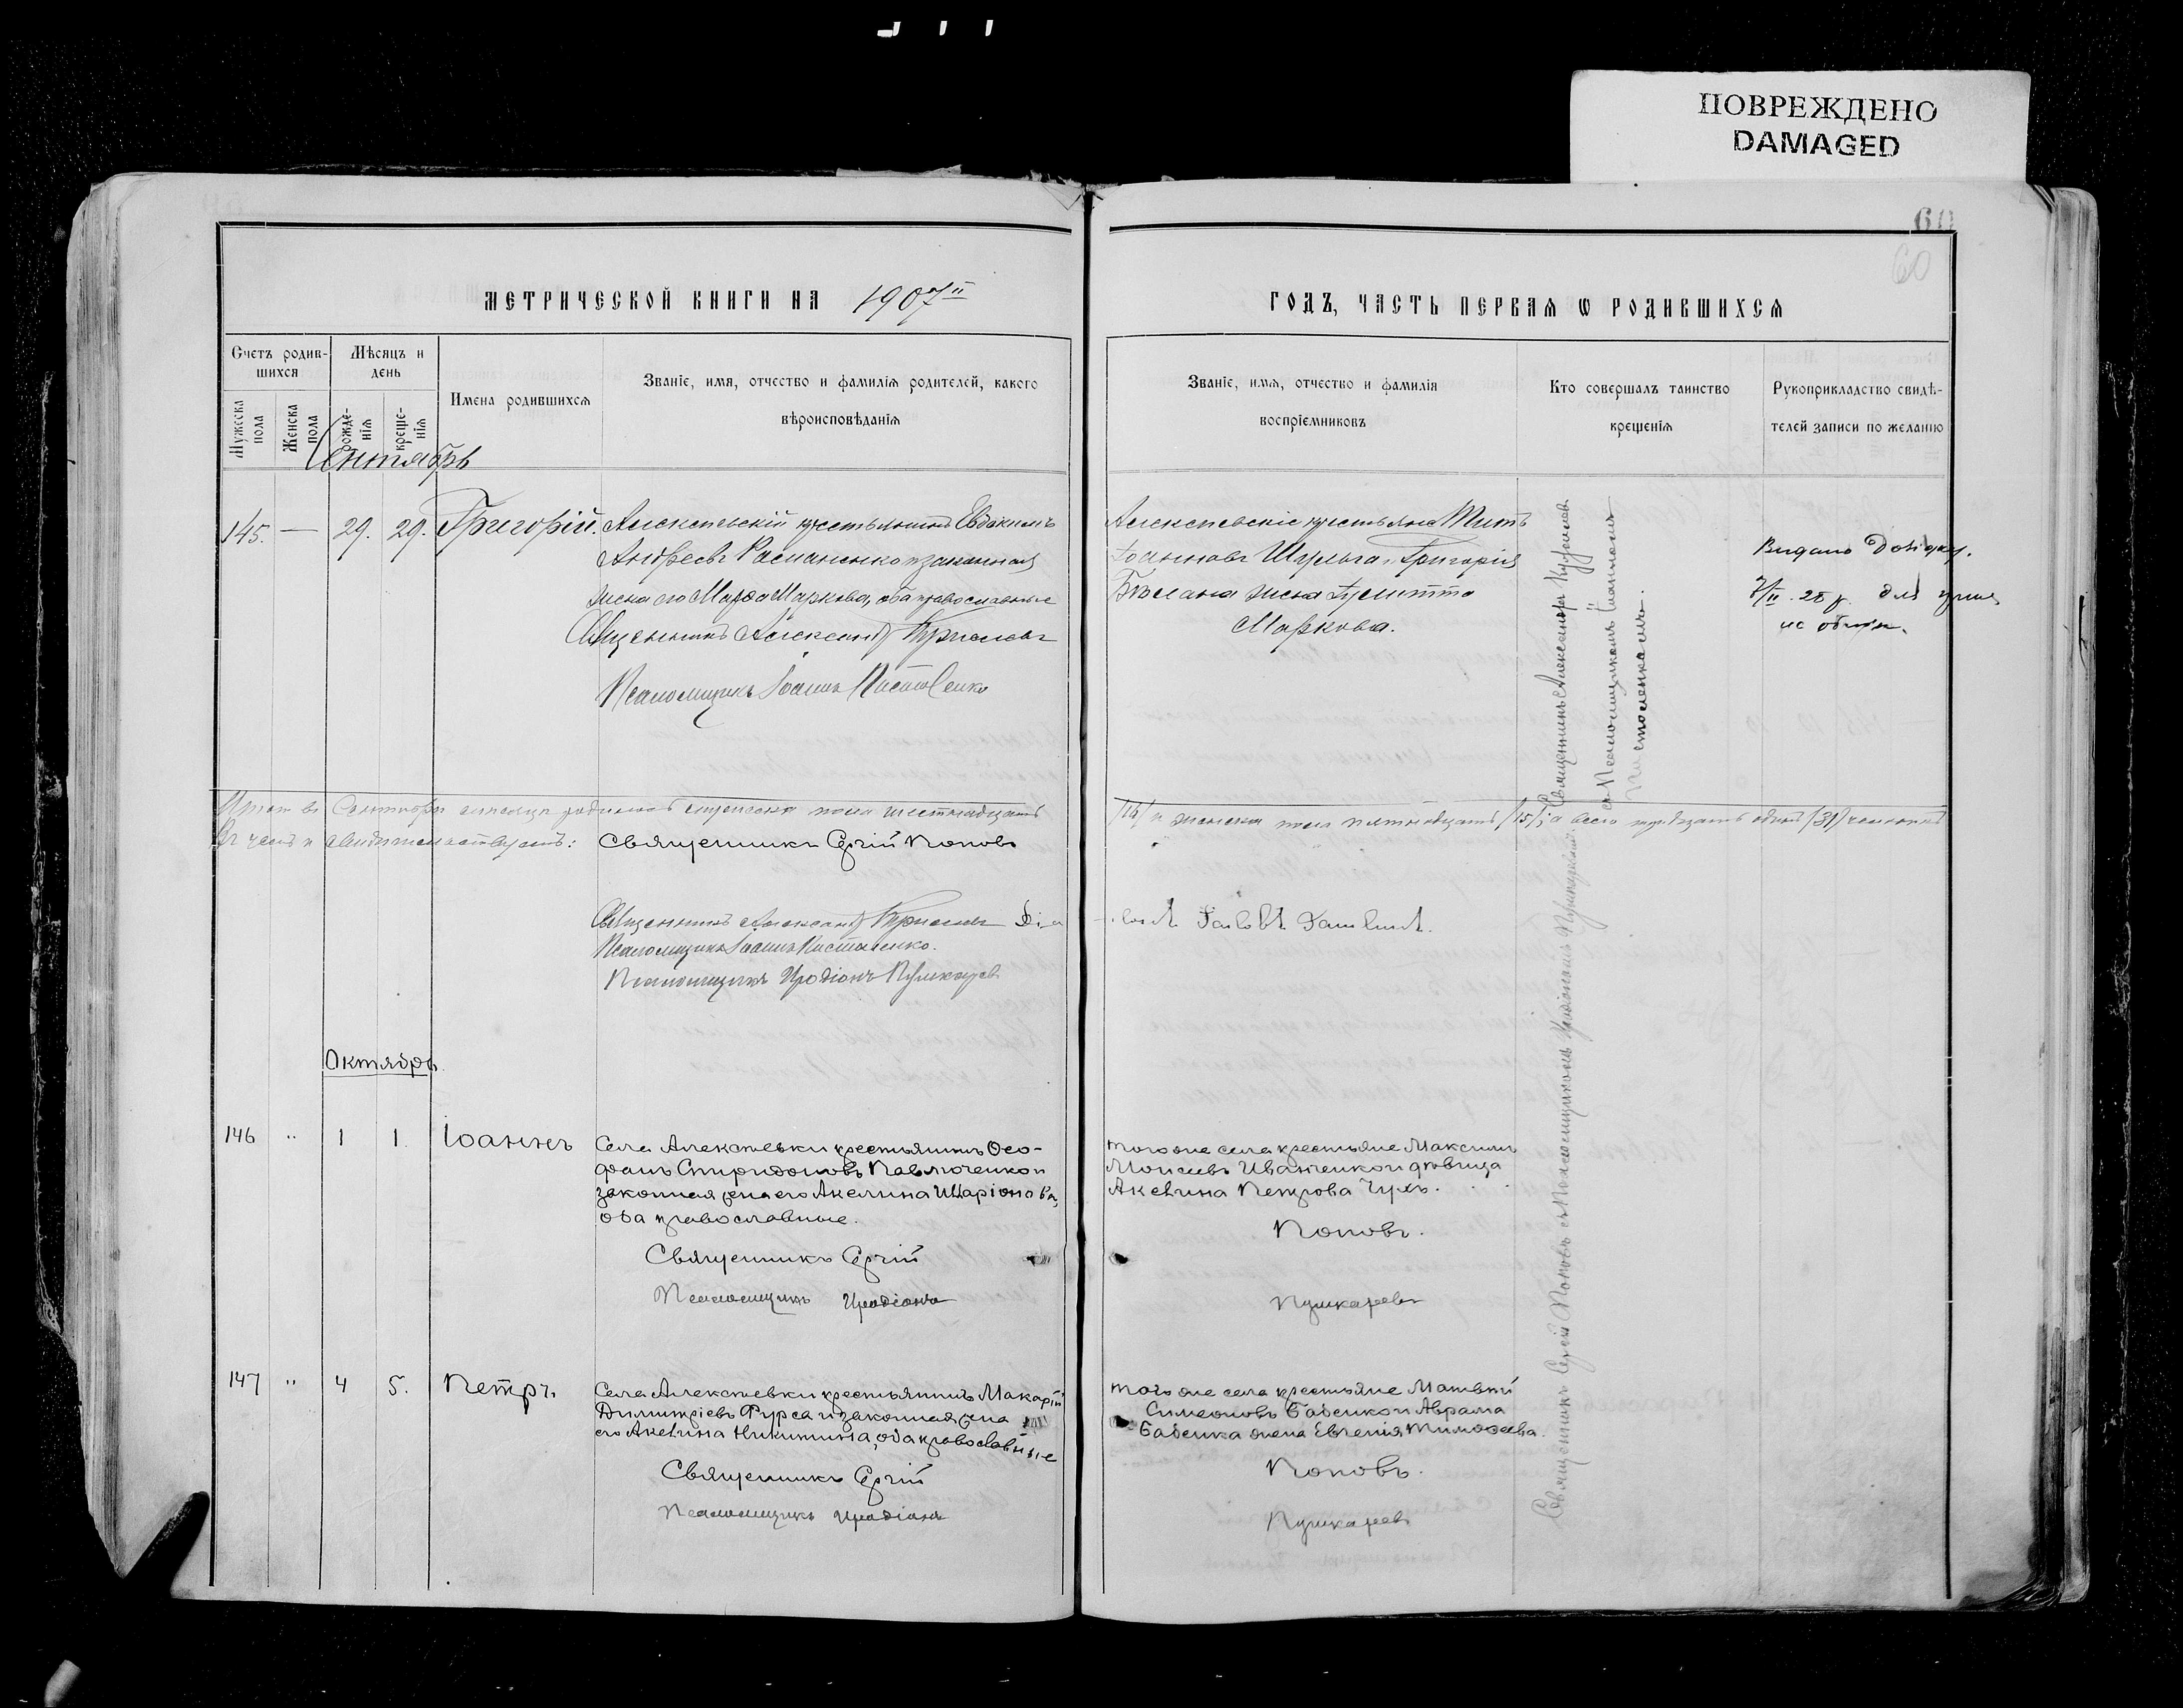 ПОВРЕЖДЕНО
DAMAGED
60
60
МЕТРИЧЕСКОЙ КНИГИ НА 1907й
ГОДЪ, ЧАСТЬ ПЕРВАЯ Ѡ РОДИВШИХСЯ
Счетъ родив-
шихся
Мужеска
пола
Женска
пола
Мѣсяцъ и
день
рожде-
нія
креще-
нія
Имена родившихся
Званіе, имя, отчество и фамилія родителей, какого
вѣроисповѣданія
Званіе, имя, отчество и фамилія
воспріемниковъ
Кто совершалъ таинство
крещенія
Рукоприкладство свидѣ-
телей записи по желанію
Сентябрь
145. — 29. 29. Григорій.
Алексѣевскій крестьянинъ Евдокимъ
Андреевъ и законная
жена его Марѳа Маркова, оба православные
Священникъ Александр
Псаломщикъ Іоаннъ
Алексѣевскіе крестьяне Титъ
Іоанновъ Шульга и Григорія
жена
Маркова.
Священникъ Александръ
съ Псаломщикомъ Іоанномъ
Видано
для
Итого въ Сентябрѣ мѣсяцѣ родилось мужеска пола шестнадцать
/16/ и женска пола пятнадцать /15/, а всего тридцать одинъ /31/ человѣкъ
Въ чемъ и свидѣтельствуютъ: Священникъ Сергій Поповъ
Священникъ Александр
Псаломщикъ Іоаннъ
Псаломщикъ Иродіонъ Пушкаревъ
Октябрь
146 " 1 1. Іоаннъ
Села Алексѣевки крестьянинъ Ѳео-
фанъ Спиридоновъ Павлюченко и
законная жена его Акелина Иларіонова,
оба православные.
Священникъ Сергій
Псаломщикъ Иродіонъ
того же села крестьяне Максимъ
Моисеевъ Иванченко и дѣвица
Акелина Петрова Чухъ.
Поповъ.
Пушкаревъ
147 " 4 5. Петръ.
Села Алексѣевки крестьянинъ Макарій
Димитріевъ Фурса и законная жена
его Акелина Никитина, оба православные
Священникъ Сергій
Псаломщикъ Иродіонъ
того же села крестьяне Матвѣй
Симеоновъ Бабенко и Аврама
Бабенка жена Евгенія Тимоѳеева.
Поповъ.
Пушкаревъ
Священникъ Сергій Поповъ съ Псаломщикомъ Иродіономъ Пушкаревымъ.